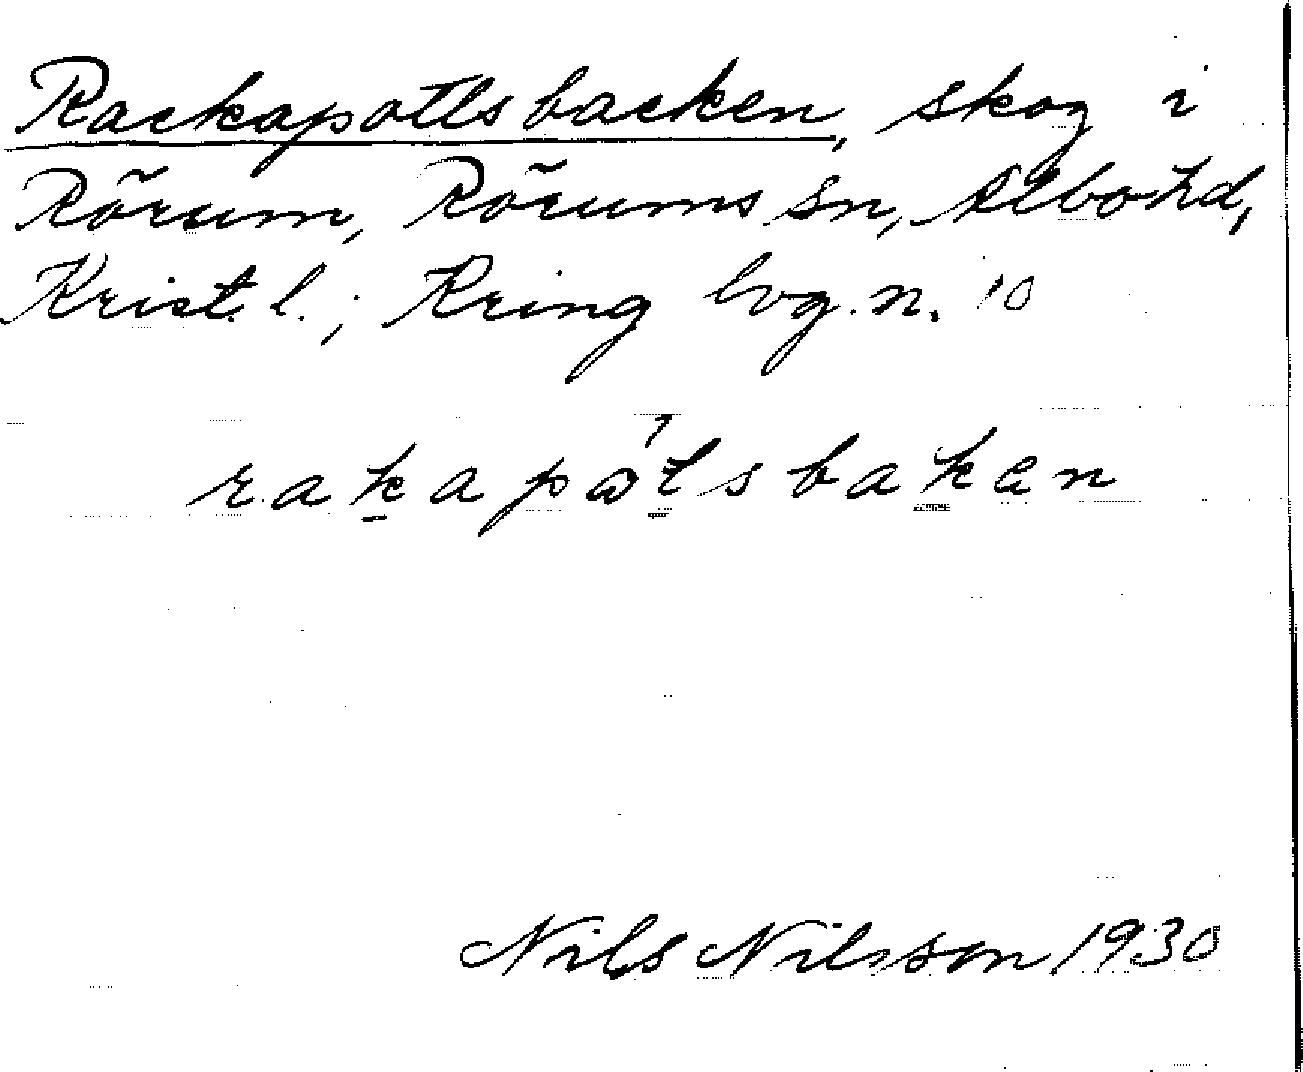 Rackapottsbacken, skog i
Rörum, Rörums sn, Albo hd,
Krist. l.; Kring hvg. n. 10
rakapåtsbakan
Nils Nilsson 1930